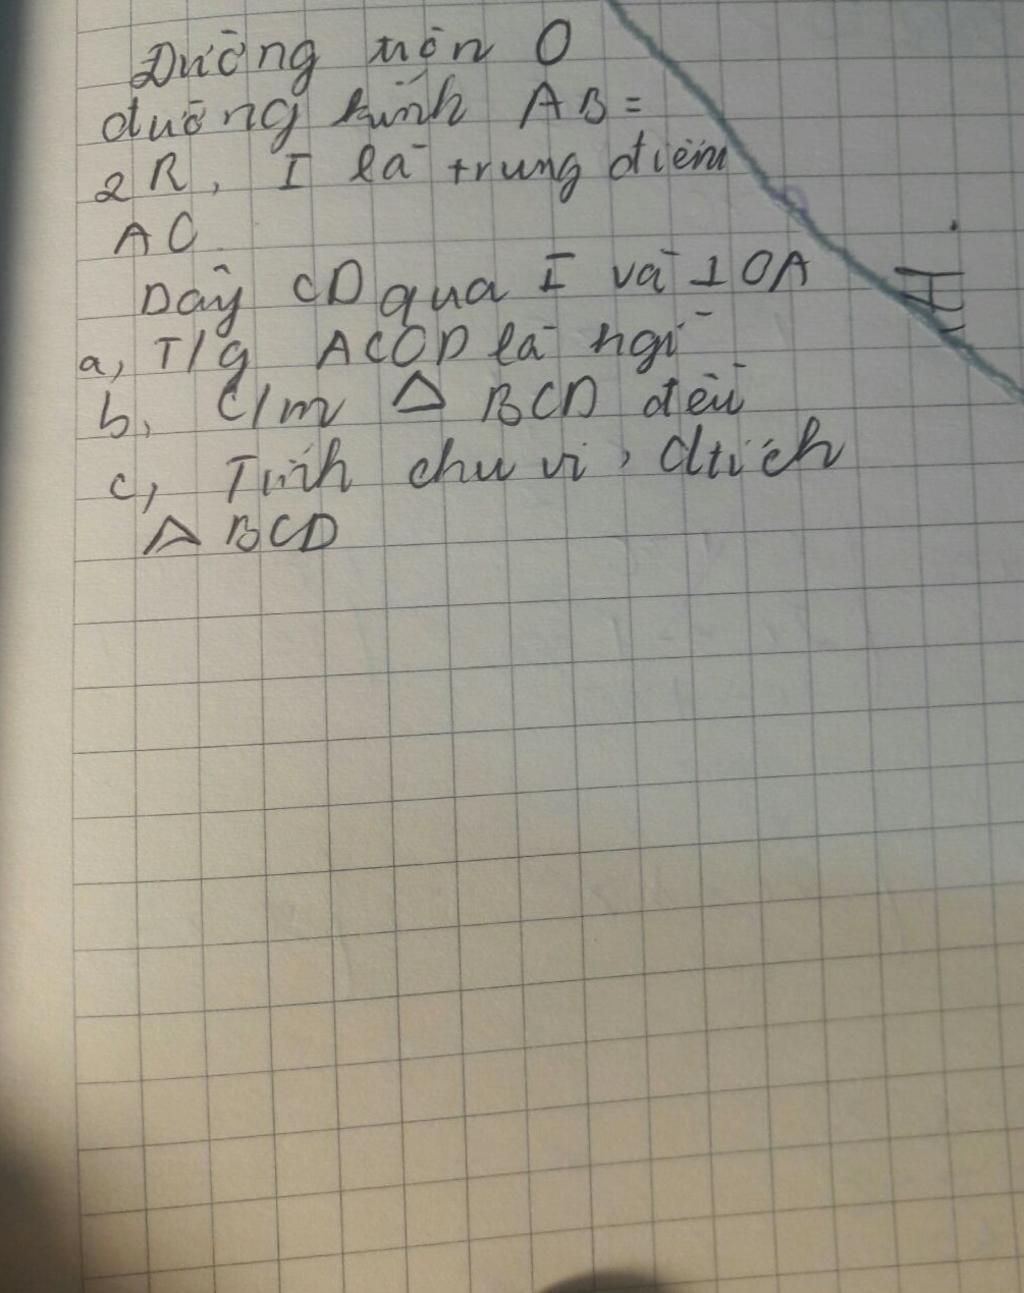 Đường tròn O
đường kính AB =
2R, I là trung điểm
AC
Dây CD qua I và ⊥ OA
a, T/g ACOD là hgì
b, C/m Δ BCD đều
c, Tính chu vi, dtích
Δ BCD